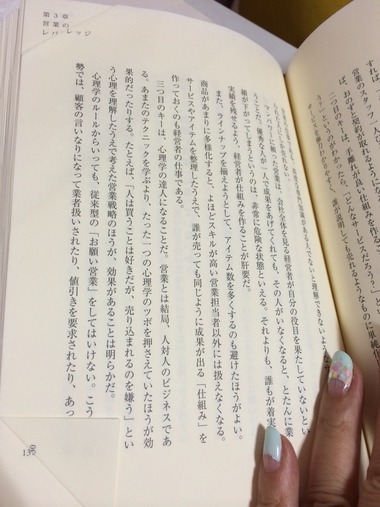 第3章
営業の
レバレッジ
マンパワーに頼った営業は、会社全体を見る経営者が自分の役目を果たしていないとい
うことだ。優秀な人が一人で成果をあげてくれても、その人がいなくなると、とたんに業
績が下がってしまうというのは、非常に危険な状態といえる。それよりも、誰もが着実
実績を残せるよう、経営者が仕組みを作ることが肝要だ。
また、ラインナップを揃えようとして、アイテム数を多くするのも避けたほうがよい。
商品があまりに多様化すると、よほどスキルが高い営業担当者以外には扱えなくなる。
サービスやアイテムを整理したうえで、誰が売っても同じように成果が出る「仕組み」を
作っておくのも経営者の仕事である。
三つ目のキーは、心理学の達人になることだ。営業とは結局、人対人のビジネスであ
る。あまたのテクニックを学ぶより、たった一つの心理学のツボを押さえていたほうが効
果的だったりする。たとえば、「人は買うことは好きだが、売り込まれるのを嫌う」とい
う心理を理解したうえで考えた営業戦略のほうが、効果があることは明らかだ。
心理学のルールからいっても、従来型の「お願い営業」をしてはいけない。こう
勢では、顧客の言いなりになって業者扱いされたり、値引きを要求されたり、あっ